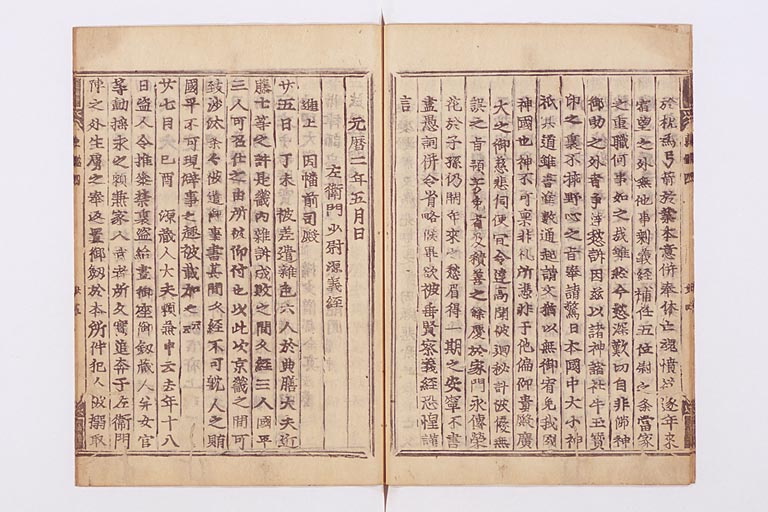 於枕馬弓箭於業本意併奉休亡魂憤欲遂年来
宿望之外無他事剩義經補任五位尉之条當家
之重職何事如之哉雖然今愁深歎切自非佛神
御助之外者争達愁訴因茲以諸神諸社牛王寶
印之裏不挿野心之旨奉請驚日本國中大小神
祇冥道雖書進数通起請文猶以無御宥免我國
神國也神不可禀非礼所憑非于他偏仰貴殿廣
大之御慈悲伺便冝令達高聞被廻秘計被優無
誤之旨預芳免者及積善之餘慶於家門永傳榮
花於子孫仍開年來之愁眉得一期之安寧不書
盡愚詞併令省略候畢欲被垂賢察義經恐惶謹
言
元曆二年五月日
左衛門少尉源義經
進上 因幡前司殿
廿五日 丁未 被差遣雜色六人於典膳大夫近
藤七等之許是畿內雜訴成敗之間久經三人國平
三人可召仕之由所被仰付也以此次京畿之間可
致沙汰条々被遣御事書其間久經不可耽人之賄
國平不可現僻事之趣被載加之云云
廿七日 己酉 源藏人大夫頼兼申云去年十八
日盗人令推參禁裏盗給晝御座御釼藏人并女官
等動揺求之頼兼家人武者所久實追奔于左衛門
陣之外生虜之奉返置御釼於本所件犯人欲搦取